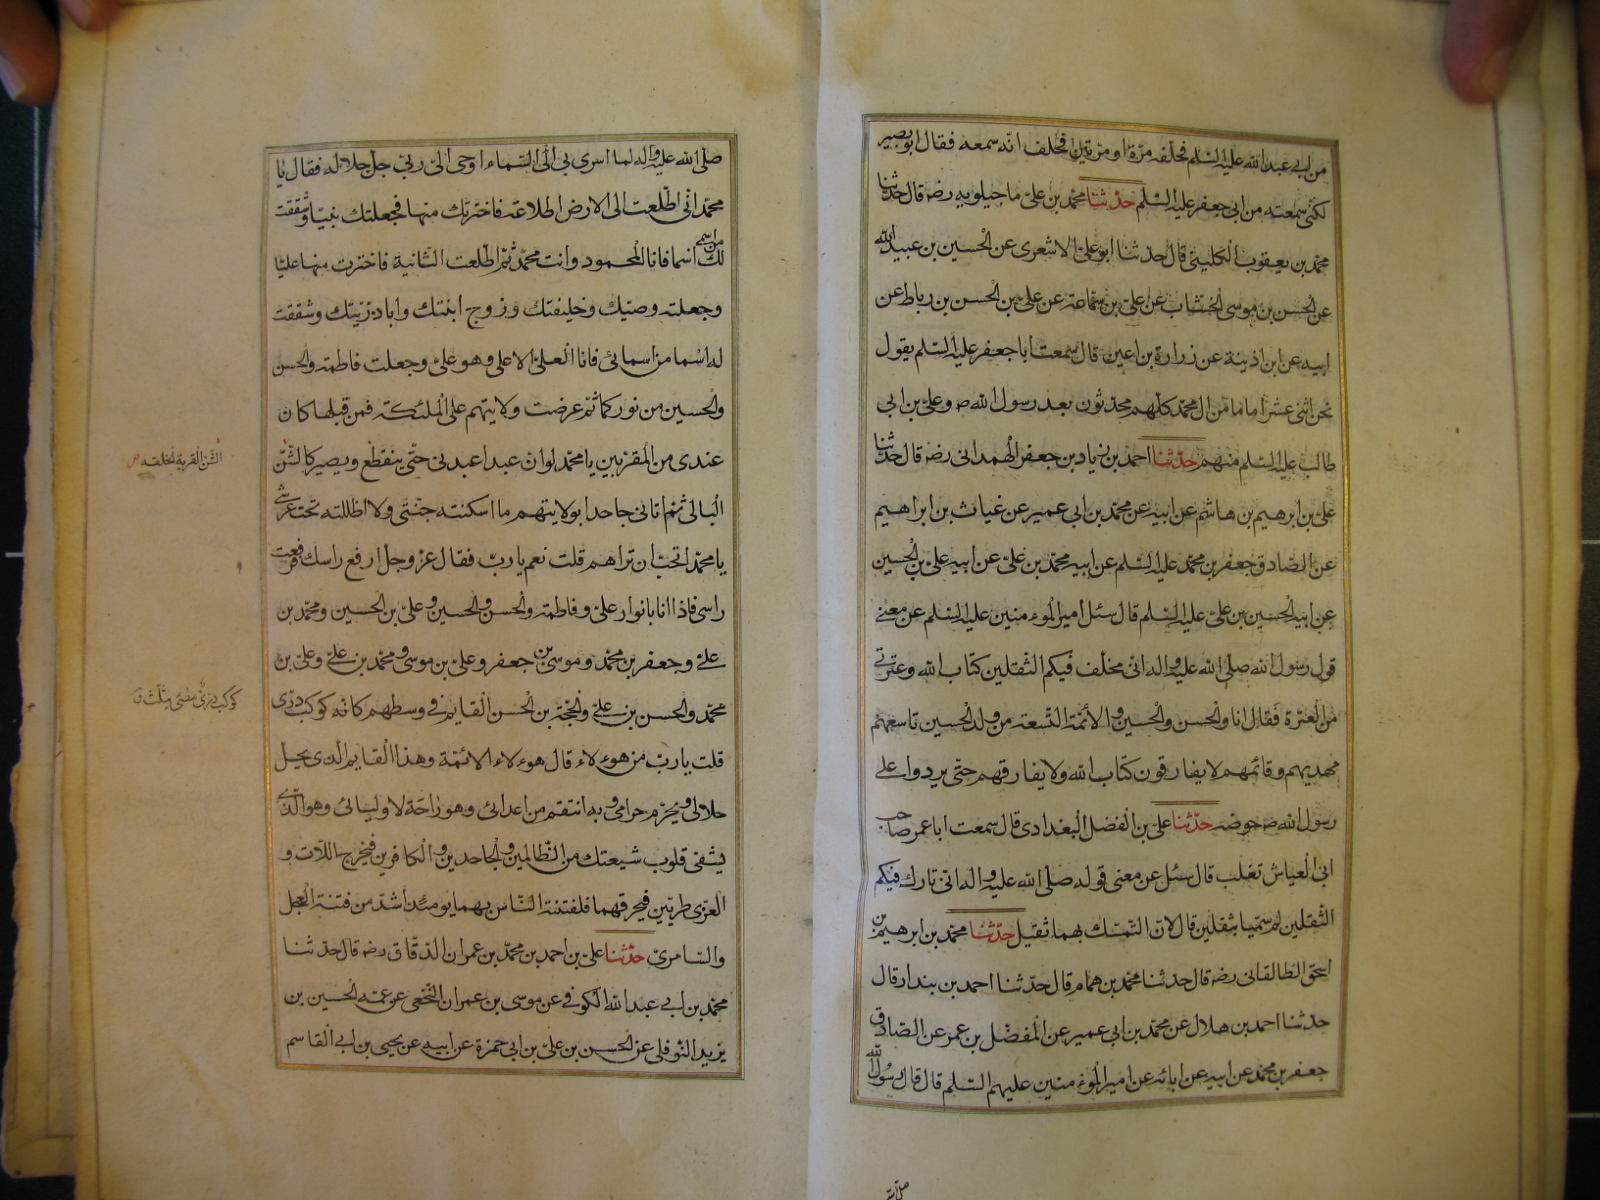 من ابي عبد الله عليه السلم فحلفه مرة او مرتين فحلف انه سمعه فقال ابو بصير
لكني سمعته من ابي جعفر عليه السلم حدثنا محمد بن علي ماجيلويه رضه قال حدثنا
محمد بن يعقوب الكليني قال حدثنا ابو علي الاشعري عن الحسين بن عبيد الله
عن الحسن بن موسى الخشاب عن علي بن سماعة عن علي بن الحسن بن رباط عن
ابيه عن ابن اذينة عن زرارة بن اعين قال سمعت ابا جعفر عليه السلم يقول
نحن اثنى عشر اماما من ال محمد كلهم محدثون بعد رسول الله ص وعلي بن ابي
طالب عليه السلم منهم حدثنا احمد بن زياد بن جعفر الهمداني رضه قال حدثنا
علي بن ابرهيم بن هاشم عن ابيه عن محمد بن ابي عمير عن غياث بن ابراهيم
عن الصادق جعفر بن محمد عليه السلم عن ابيه محمد بن علي عن ابيه علي بن الحسين
عن ابيه الحسين بن علي عليه السلم قال سئل امير المؤمنين عليه السلم عن معنى
قول رسول الله صلى الله عليه واله انى مخلف فيكم الثقلين كتاب الله وعترتي
من العترة فقال انا والحسن والحسين والائمة التسعة من ولد الحسين تاسعهم
مهديهم وقائمهم لا يفارقون كتاب الله ولا يفارقهم حتى يردوا على
رسول الله ص حوضه حدثنا علي بن الفضل البغدادي قال سمعت ابا عمر صاحب
ابي العباس تغلب قال سئل عن معنى قوله صلى الله عليه واله اني تارك فيكم
الثقلين لم سميا بثقلين قال لان التمسك بهما ثقيل حدثنا محمد بن ابرهيم بن
اسحق الطالقاني رضه قال حدثنا محمد بن همام قال حدثنا احمد بن بندار قال
حدثنا احمد بن هلال عن محمد بن ابي عمير عن المفضل بن عمر عن الصادق
جعفر بن محمد عن ابيه عن ابائه عن امير المؤمنين عليهم السلم قال قال رسول الله
صلى الله
صلى الله عليه واله لما اسرى بي الى السماء اوحى الى ربي جل جلاله فقال يا
محمد اني اطلعت الى الارض اطلاعة فاخترتك منها فجعلتك نبيا وشققت
لك من اسمي اسما فانا المحمود وانت محمد ثم اطلعت الثانية فاخترت منها عليا
وجعلته وصيك وخليفتك وزوج ابنتك وابا ذريتك وشققت
له اسما من اسمائي فانا العلي الاعلى وهو علي وجعلت فاطمة والحسن
والحسين من نوركما ثم عرضت ولايتهم على الملئكة فمن قبلها كان
عندي من المقربين يا محمد لو ان عبدا عبدني حتى ينقطع ويصير كالشن
البالي ثم اتاني جاحدا بولايتهم ما اسكنته جنتي ولا اظللته تحت عرشي
يا محمد اتحب ان تراهم قلت نعم يا رب فقال عز وجل ارفع راسك فرفعت
راسي فاذا انا بانوار علي وفاطمة والحسن والحسين وعلي بن الحسين ومحمد بن
علي وجعفر بن محمد وموسى بن جعفر وعلي بن موسى ومحمد بن علي وعلي بن
محمد والحسن بن علي والحجة بن الحسن القايم في وسطهم كانه كوكب دري
قلت يا رب من هؤلاء قال هؤلاء الائمة وهذا القايم الذي يحل
حلالي ويحرم حرامي وبه انتقم من اعدائي وهو راحة لاوليائي وهو الذي
يشفي قلوب شيعتك من الظالمين والجاحدين والكافرين فيخرج اللات و
العزى طريين فيحرقهما فلفتنة الناس بهما يومئذ اشد من فتنة العجل
والسامري حدثنا علي بن احمد بن محمد بن عمران الدقاق رضه قال حدثنا
محمد بن ابي عبد الله الكوفي عن موسى بن عمران النخعي عن عمه الحسين بن
يزيد النوفلي عن الحسن بن علي بن ابي حمزة عن ابيه عن يحيى بن ابي القاسم
الشن القربة الخلقه ص
كوكب دري مضئ